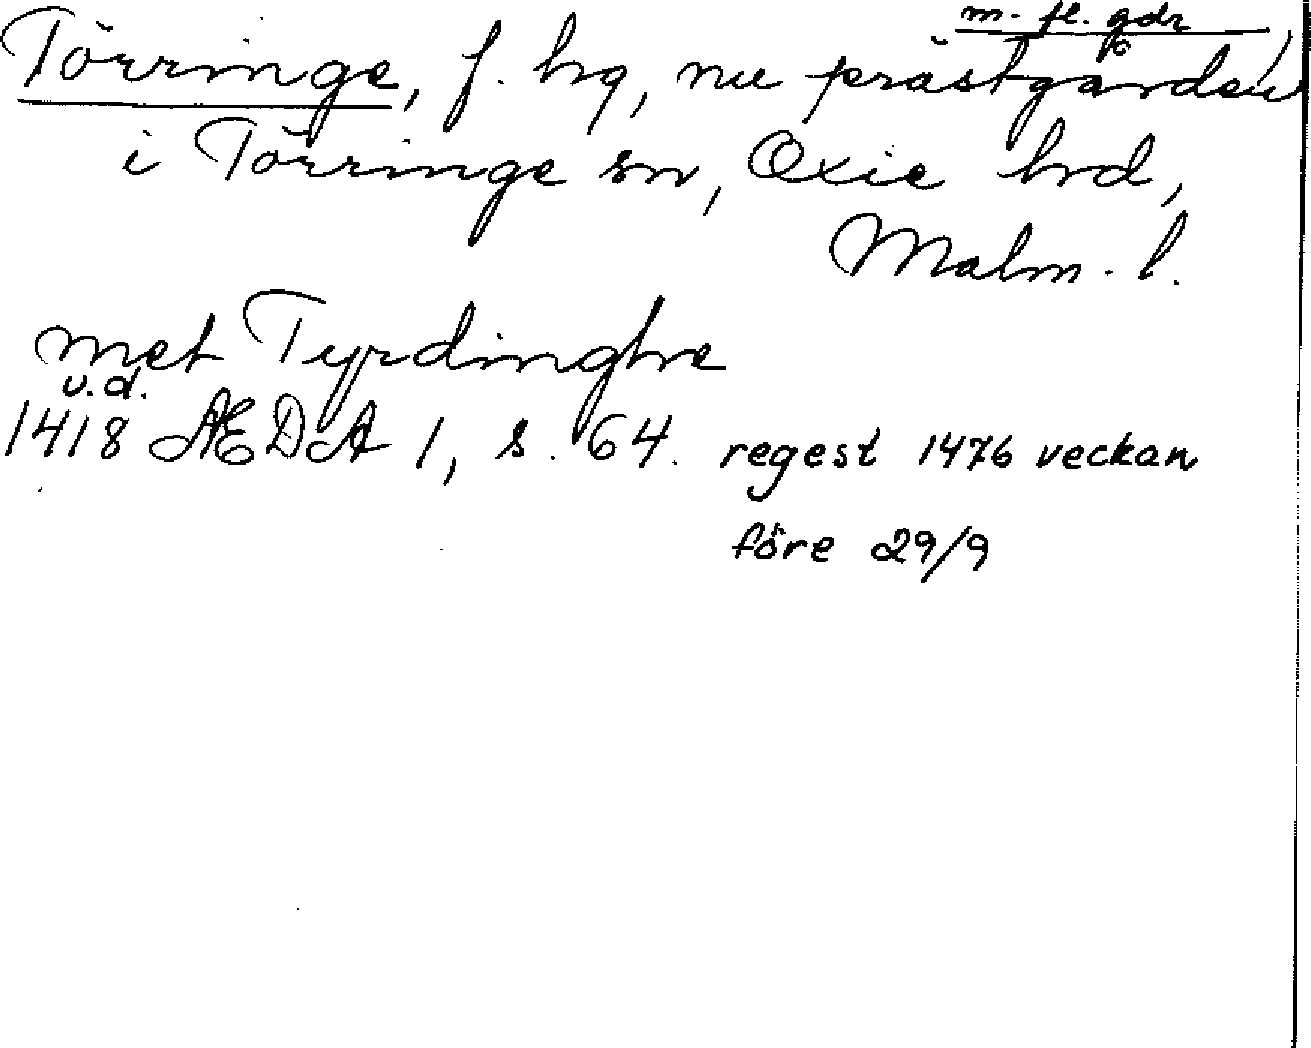 m. fl. gdr
Törringe, f. hrg, nu prästgården
i Törringe sn, Oxie hrd,
Malm. l.
met Tyrdinghe
u.d.
1418 ÆDA 1, s. 64. regest 1476 veckan
före 29/9